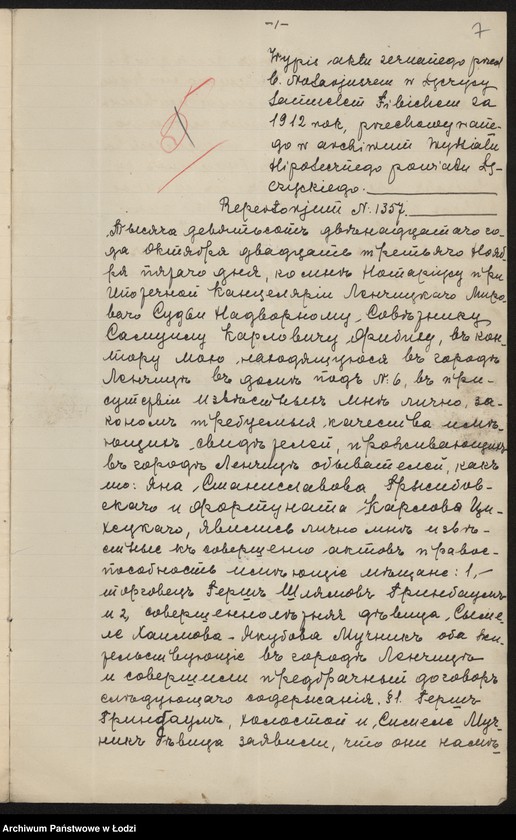 -1-
7
Wypis aktu zeznanego przed
b. Notarjuszem w Łęczycy
Samuelem Fibichem za
1912 rok, przechowywane-
go w archiwum Wydziału
Hipotecznego powiatu Łę-
czyckiego.
Repertorjum N. 1357.
Тысяча девятьсотъ двѣнадцатаго го-
да Октября двадцать третьяго Нояб-
ря пятаго дня, ко мнѣ Нотаріусу при
Ипотечной Канцеляріи Ленчицкаго Миро-
ваго Судьи Надворному Совѣтнику
Самуилу Карловичу Фибиху, въ кон-
тору мою находящуюся въ городѣ
Ленчицѣ въ домѣ подъ N. 6, въ при-
сутствіи извѣстныхъ мнѣ лично, за-
кономъ требуемыя качества имѣ-
ющихъ свидѣтелей, проживающихъ
въ городѣ Ленчицѣ обывателей, какъ
то: Яна Станиславова
скаго и Фортуната Карлова
явились лично мнѣ извѣ-
стные къ совершенію актовъ право-
способность имѣющіе мѣщане: 1,-
торговецъ Гершъ Шлямовъ Гринбаумъ
и 2, совершеннолѣтняя дѣвица
Хаимова-Якубова Мучникъ оба жи-
тельствующіе въ городѣ Ленчицѣ
и совершили предбрачный договоръ
слѣдующаго содержанія. §1. Гершъ
Гринбаумъ, холостой и Муч-
никъ дѣвица заявили, что они намѣ-
Archiwum Państwowe w Łodzi